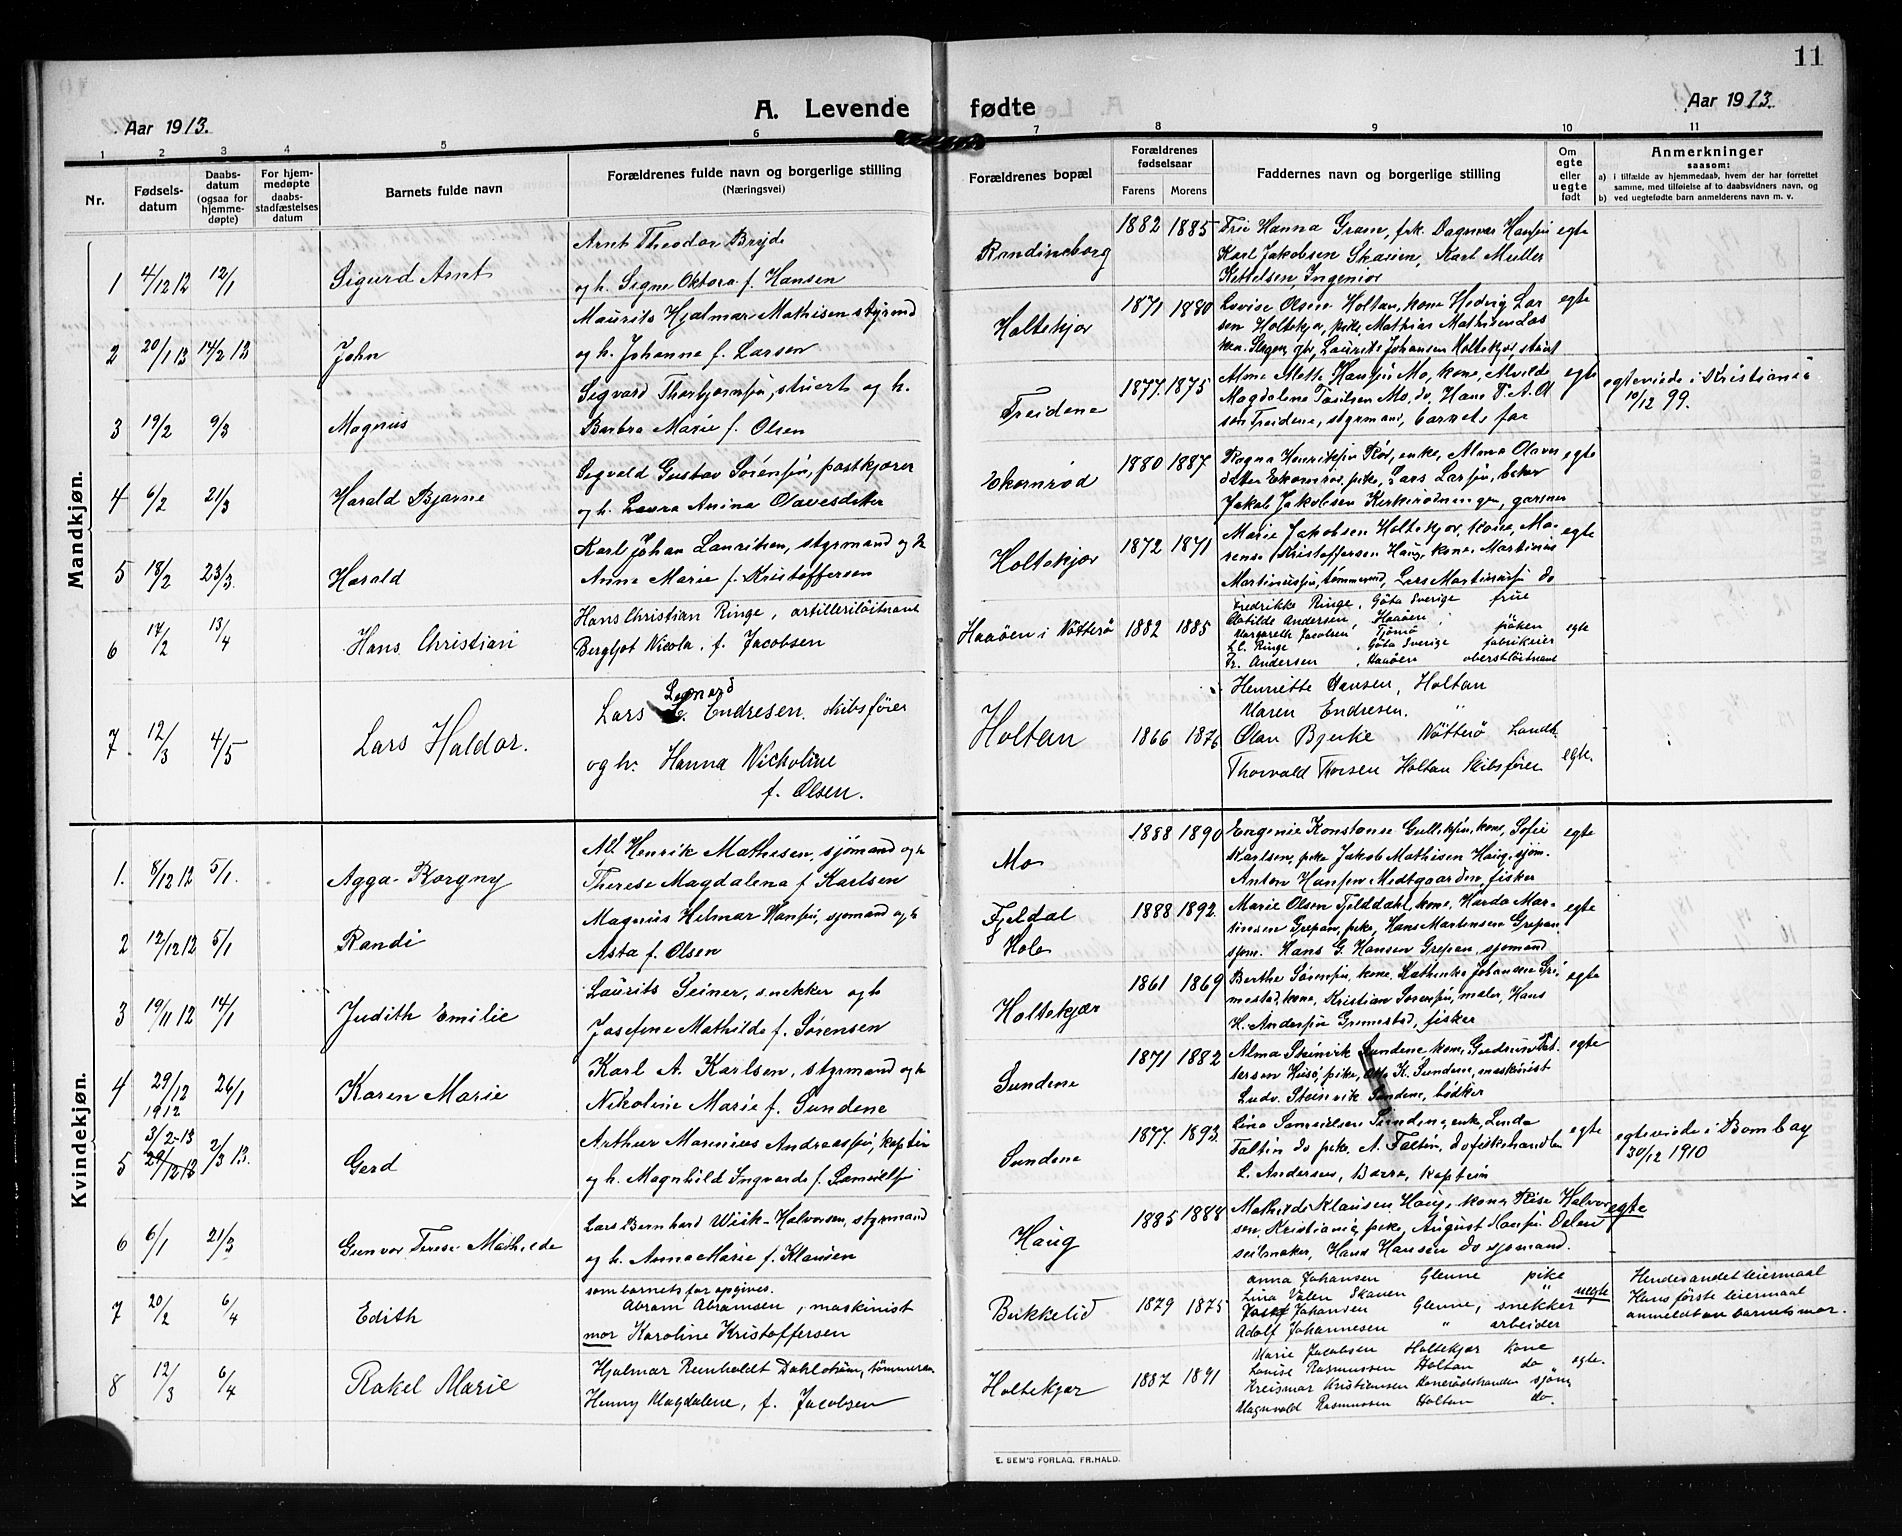 11
A. Levende fødte
Aar 1913.
Aar 1913.
1 2 3 4 5 6 7 8 9 10 11
Nr.
Fødsels-
datum
Daabs-
datum
(ogsaa for
hjemme-
døpte)
For hjem-
medøpte
daabs-
stadfæstelses
datum
Barnets fulde navn
Forældrenes fulde navn og borgerlige stilling
(Næringsvei)
Forældrenes bopæl
Forældrenes
fødselsaar
Farens Morens
Faddernes navn og borgerlige stilling
Om
egte
eller
uegte
født
Anmerkninger
saasom:
a) i tilfælde av hjemmedaab, hvem der har forrettet
samme, med tilføielse af to daabsvidners navn, og
b) ved uegtefødte barn anmelderens navn m. v.
Mandkjøn.
1 4/12 12 12/1 Sigurd Arnt
Arnt Theodor Bryde
og h. Signe Oktora f. Hansen
Rundineborg 1882 1885
Frue Hanna Gram, frk. Dagmar Hansen egte
Karl Jakobsen Skauen, Karl Muller
Kettelsen, Ingeniør
2 20/1 13 14/2 13 John
Maurits Hjalmar Mathisen styrmd
og h. Johanne f. Larsen
Holtekjør 1871 1880
Lovise Olsen Holtan, kone, Hedvig Lar
sen Holtekjør, pike, Mathias Mathisen
Slagen, gbr, Laurits Johansen Holtekjør, stuert
egte
3 19/2 9/3 Magnus
Sigvard Thorbjørnsen, stuert og h.
Barbra Marie f. Olsen
Treidene 1877. 1875
Hansen Mo, kone, Alvilde
Magdalene Mo, do, Hans P. A. Ol
sen Treidene, styrmand, barnets far
egte
egteviede i Kristiania
10/12 99.
4 6/2 21/3 Harald Bjarne
Sigvald Gustav Sørensen, postkjører
og h. Laura Anina Olavesdatter
Ekornrød 1880 1887
Ragna Henriksen Rør, enke, Alma Olaves
datter Ekornrød, pike, Lars Larsen, beker
Jakob Jakobsen Kirkerødningen, garsner
egte
5 18/2 23/3. Harald
Karl Johan Lauritsen, styrmand og h
Anne Marie f. Kristoffersen
Holtekjør 1872 1871
Marie Jakobsen Holtekjør, kone, Ma-
rense Kristoffersen Haug, kone, Martinius
Martiniussen, tømmermd, Lars Martinussen do
egte
6 17/2 13/4 Hans Christian
Hans Christian Ringe, artilleriløitnant
Bergljot Nicola. f. Jacobsen
Haaöen i Nötterö 1882 1885
Fredrikke Ringe, Göta Sverige frue
Botilde Andersen, Haaöen,
Margarethe Jacobsen, Tjömö pöken
L. C. Ringe, Göta Sverige fabrikeier
Fr. Andersen, Haaöen oberstlöitnant
egte
7 12/3 4/5 Lars Haldor.
Leonard
Lars L. Endresen. skibsfører
og h. Hanna Nickoline
f. Olsen.
Holtan 1866 1876
Henriette Hansen, Holtan
Maren Endresen. "
Olav Bjerke Nötterö Landh.
Thorvald Torsen Holtan Skibsfører
egte.
Kvindekjøn.
1. 8/12 12 5/1. Agga Borgny
Alf Henrik Mathisen, sjømand og h
Therese Magdalena f Karlsen
Mo 1888 1890
Engenie Konstanse Gulliksen, kone, Sofie
Karlsen, pike Jakob Mathisen Haug, sjøm.
Anton Hansen Midtgaarden, fisker
egte
2 12/12 12 5/1 Randi
Magnus Hilmar Hansen, sjømand og h
Asta f. Olsen
Fjeldal
Hole
1888 1892.
Marie Olsen Fjelddahl, kone, Harda Mar-
tinsen Grepan, pike, Hans Martensen Grepan
sjøm. Hans G. Hansen Grepan, sjømand
egte
3 19/11 12 14/1 Judith Emilie
Laurits Seiner, snekker og h
Josefine Mathilde f. Sørensen
Holtekjær 1861 1869
Berthe Sørensen, kone, Kathinka Johansen Gri
mestad, kone, Kristian Sørensen, maler, Hans
H. Andersen Grimestad, fisker
egte
4 29/12 1912 26/1 Karen Marie
Karl A. Karlsen, styrmand og h
Nikoline Marie f. Sundene
Sundene 1871 1882
Alma Steinvik Sundene kone, Gudrun Pet-
tersen Husö, pike, Otto K. Sundene, maskinist
Ludv. Steinvik Sundene, bødker
egte
5 3/2-13 29/12 12 2/3 13. Gerd
Arthur Marinius Andreassen, kaptein
og h. Magnhild Ingvarda f. Samuelsen
Sundene 1877. 1893.
Lina Samuelsen Sunden, enke, Linda
Faltin do pike, A. Faltin, do fiskehandler
L. Andersen, Barre, kaptein
egte
egteviede i Bombay
30/12 1910
6 6/1 21/3 Gunvor Terese Mathilde
Lars Bernhard Wiik-Halvorsen, styrmand
og h. Anna Marie f. Klausen
Haug 1885 1888
Mathilde Klausen Haug, kone, Lise Halvor
sen, Kristiania, pike, August Hansen Dalen
seilmaker, Hans Hansen do sjømand.
egte
7 20/2 6/4 Edith
som barnets far opgives.
Abram Abramsen, maskinist
mor Karoline Kristoffersen
Bekkelid 1879 1875
Anna Johansen Glenne pike
Lina Valen Skauen "
Josef Johansen Glenne, snekker
Adolf Johannesen " arbeider
uegte
Hendes andet leiermaal
Hans første leiermaal
anmeldt av barnets mor.
8 12/3 6/4 Rakel Marie
Hjalmar Reinholdt Dahlström, tömmerm
Henny Magdalene, f. Jacobsen
Holtekjær 1887 1891
Marie Jacobsen Holtekjær kone
Louise Rasmussen Holtan do
Kreismar Kristiansen Sandrödstranden sjöm,
Magnvald Rasmussen Holtan do.
egte.
E. SEM'S FORLAG, FR.HALD.